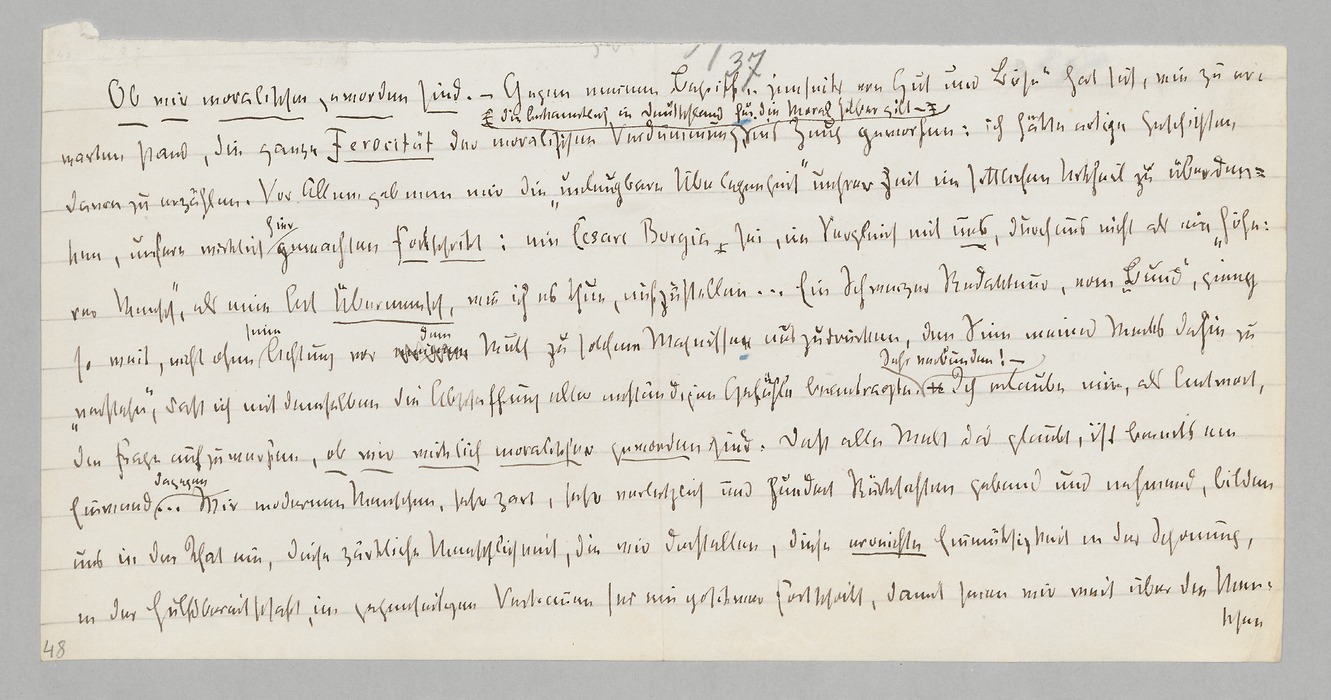 137
Ob wir moralischer geworden sind. — Gegen meinen Begriff „jenseits von Gut und Böse“ hat sich, wie zu er-
die bekanntlich in Deutschland für die Moral selber gilt —
warten stand, die ganze Ferocität der moralischen Verdummung, ins Zeug geworfen: ich hätte artige Geschichten
davon zu erzählen. Vor Allem gab man mir die „unleugbare Überlegenheit“ unsrer Zeit im sittlichen Urtheil zu überden=
hier
ken, unsern wirklich gemachten Fortschritt: ein Cesare Borgia sei, im Vergleich mit uns, durchaus nicht als ein „höhe:
rer Mensch“, als eine Art Übermensch, wie ich es thue, aufzustellen... Ein Schweizer Redakteur, vom „Bund“, gieng
seine dem
so weit, nicht ohne Achtung vor Muth zu solchem Wagniss auszudrücken, den Sinn meines Werks dahin zu
Sehr verbunden! —
„verstehn“, daß ich mit demselben die Abschaffung aller anständigen Gefühle beantragte. Ich erlaube mir, als Antwort,
die Frage aufzuwerfen, ob wir wirklich moralischer geworden sind. Daß alle Welt das glaubt, ist bereits ein
dagegen
Einwand... Wir modernen Menschen, sehr zart, sehr verletzlich und hundert Rücksichten gebend und nehmend, bilden
uns in der That ein, diese zärtliche Menschlichkeit, die wir darstellen, diese erreichte Einmüthigkeit in der Schonung,
in der Hülfsbereitschaft, im gegenseitigen Vertrauen sei ein positiver Fortschritt, damit seien wir weit über die Men-
schen
48